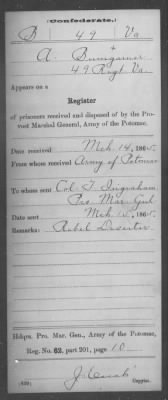 (Confederate.)
B 49 Va
A. Bumgarner
49 Regt Va.
Appears on a
Register
of prisoners received and disposed of by the Provost Marshal General, Army of the Potomac.
Date received Mch 14, 1865.
From whom received Army of Potomac
To whom sent Col. T. Ingraham,
Pro. Mar. Genl
Date sent Mch 15, 1865.
Remarks: Rebel Deserter
Hdqrs. Pro. Mar. Gen., Army of the Potomac,
Reg. No. 62, part 201, page 10
Copyist.